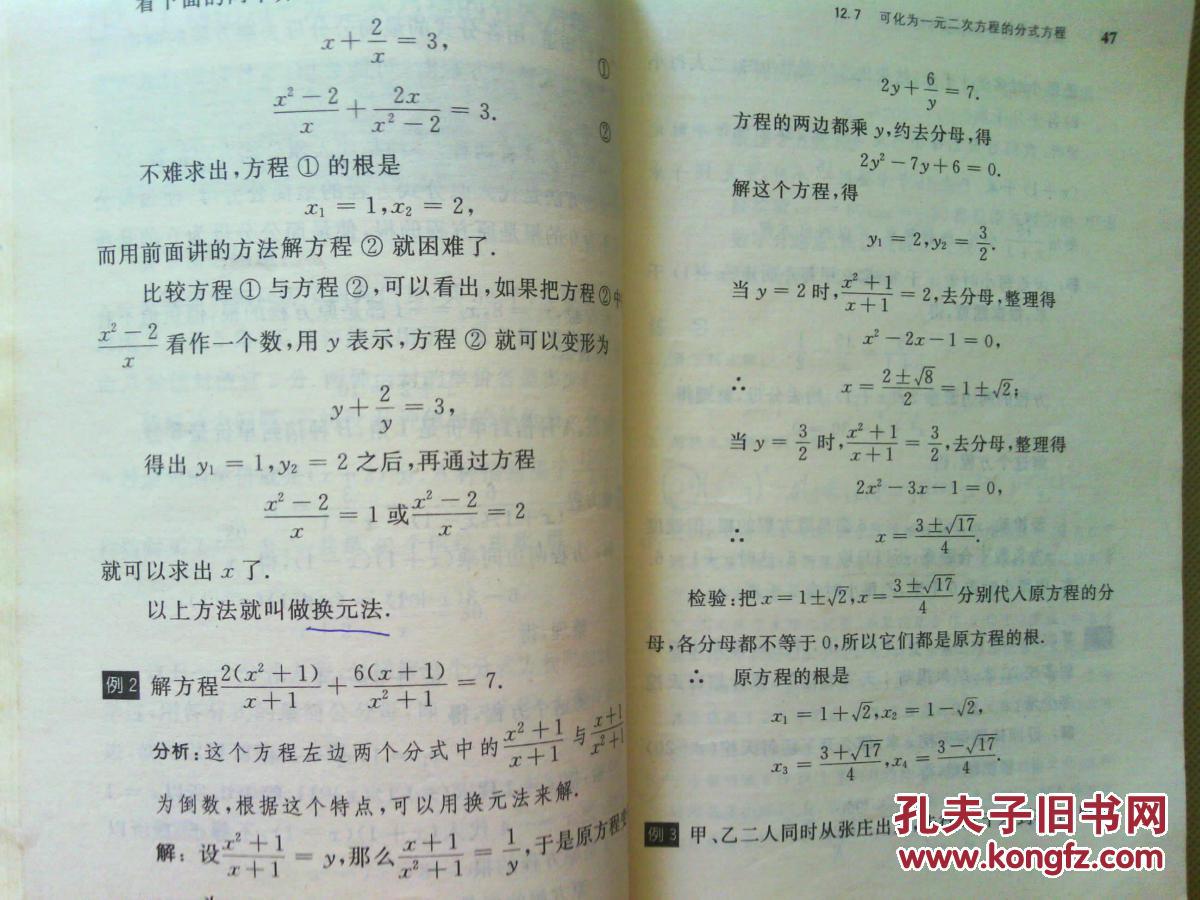 x + 2/x = 3, ①
(x² − 2)/x + 2x/(x² − 2) = 3. ②
不难求出,方程 ① 的根是
x₁ = 1, x₂ = 2,
而用前面讲的方法解方程 ② 就困难了.
比较方程 ① 与方程 ②,可以看出,如果把方程②中
(x² − 2)/x 看作一个数,用 y 表示,方程 ② 就可以变形为
y + 2/y = 3,
得出 y₁ = 1, y₂ = 2 之后,再通过方程
(x² − 2)/x = 1 或 (x² − 2)/x = 2
就可以求出 x 了.
以上方法就叫做换元法.
例2 解方程 2(x² + 1)/(x + 1) + 6(x + 1)/(x² + 1) = 7.
分析:这个方程左边两个分式中的 (x² + 1)/(x + 1) 与 (x + 1)/(x² + 1)
为倒数,根据这个特点,可以用换元法来解.
解:设 (x² + 1)/(x + 1) = y,那么 (x + 1)/(x² + 1) = 1/y,于是原方程变
12.7 可化为一元二次方程的分式方程 47
2y + 6/y = 7.
方程的两边都乘 y,约去分母,得
2y² − 7y + 6 = 0.
解这个方程,得
y₁ = 2, y₂ = 3/2.
当 y = 2 时, (x² + 1)/(x + 1) = 2,去分母,整理得
x² − 2x − 1 = 0,
∴ x = (2 ± √8)/2 = 1 ± √2;
当 y = 3/2 时, (x² + 1)/(x + 1) = 3/2,去分母,整理得
2x² − 3x − 1 = 0,
∴ x = (3 ± √17)/4.
检验:把 x = 1 ± √2, x = (3 ± √17)/4 分别代入原方程的分
母,各分母都不等于 0,所以它们都是原方程的根.
∴ 原方程的根是
x₁ = 1 + √2, x₂ = 1 − √2,
x₃ = (3 + √17)/4, x₄ = (3 − √17)/4.
例3 甲、乙二人同时从张庄出
孔夫子旧书网
www.kongfz.com